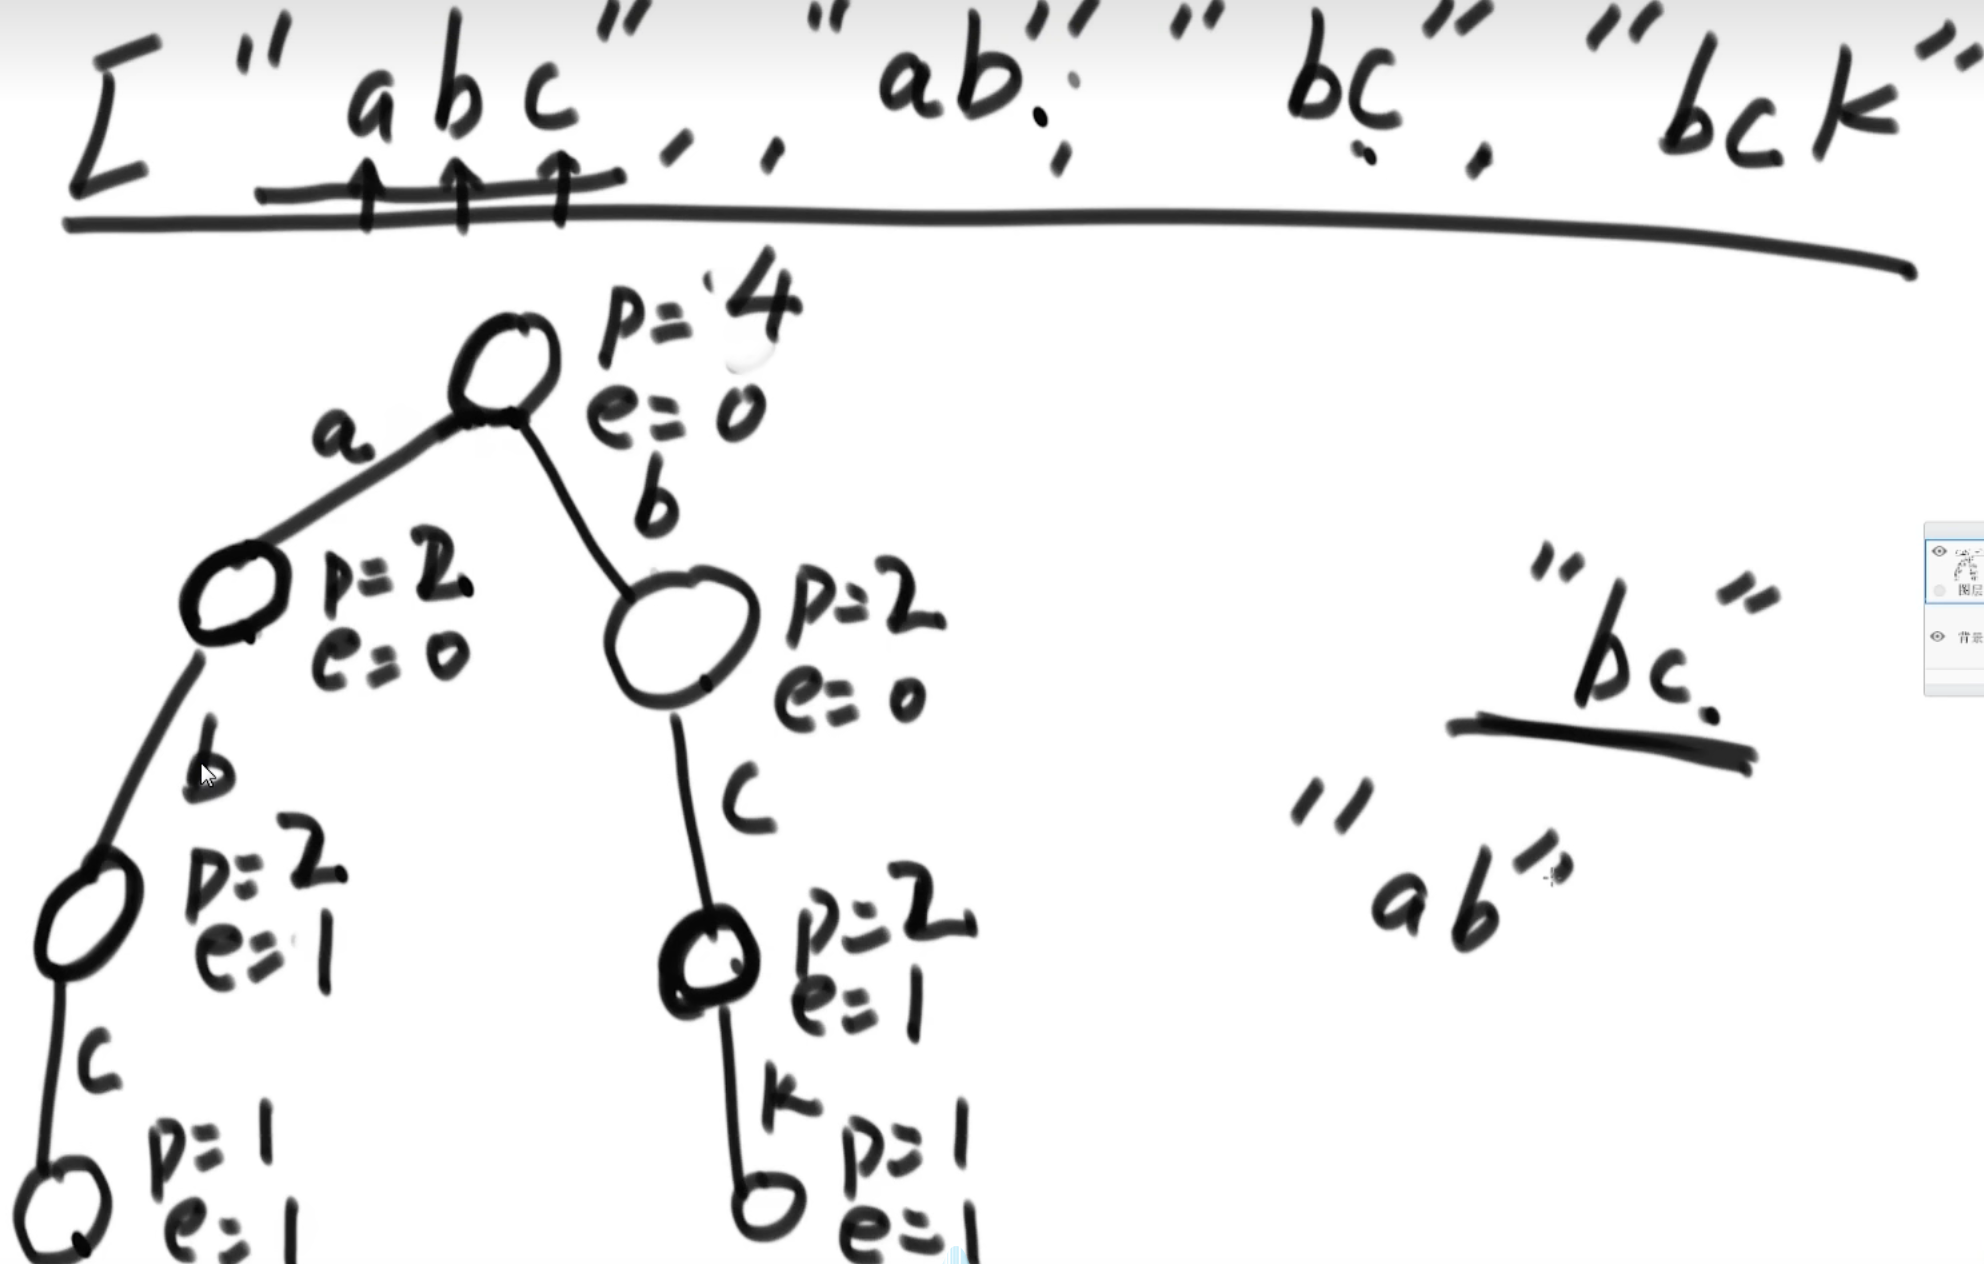 ["abc", , "ab", "bc", "bck"
p=4
e=0
a
b
p=2
e=0
p=2
e=0
"bc"
b
c
"ab"
p=2
e=1
p=2
e=1
c
k
p=1
e=1
p=1
e=1
背景